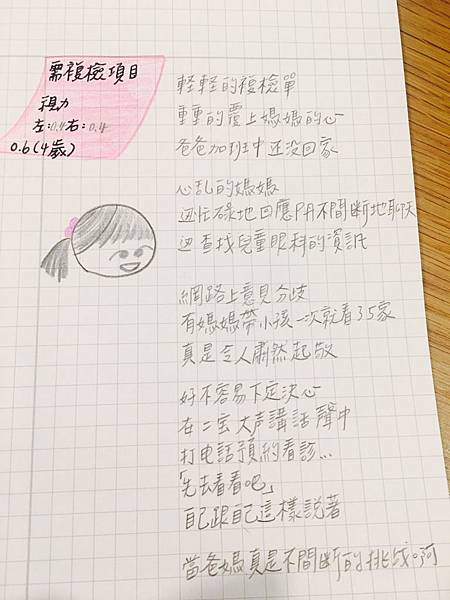 需複檢項目
視力
左:0.4右:0.4
0.6(4歲)
軽軽的複檢單
重重的覆上媽媽的心
爸爸加班中还没回家
心乱的媽媽
边忙碌地回應PA不間斷地聊天
边查找兒童眼科的資訊
網路上意見分歧
有媽媽帶小孩一次就看35家
真是令人肅然起敬
好不容易下定決心
在二宝大声講話聲中
打电話預約看診...
「先去看看吧」
自己跟自己這樣說著
當爸媽真是不間斷的挑战啊